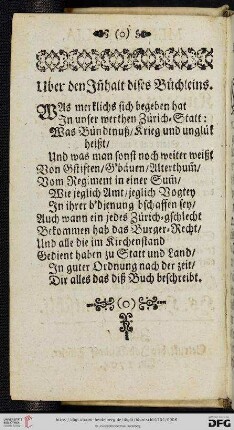 (o)
Uber den Jnhalt dises Büchleins.
WAs merklichs sich begeben hat
Jn unser werthen Zürich-Statt:
Was Bündtnuß/ Krieg und unglük
heißt/
Und was man sonst noch weiter weißt
Von Gstifften/ G'bäuen/ Alterthum/
Vom Regiment in einer Sum/
Wie jeglich Amt/ jeglich Vogtey
Jn ihrer b'dienung bschaffen sey/
Auch wann ein jedes Zürich-gschlecht
Bekommen hab das Burger-Recht/
Und alle die im Kirchenstand
Gedient haben zu Statt und Land/
Jn guter Ordnung nach der zeit/
Dir alles das diß Buch beschreibt.
(o)